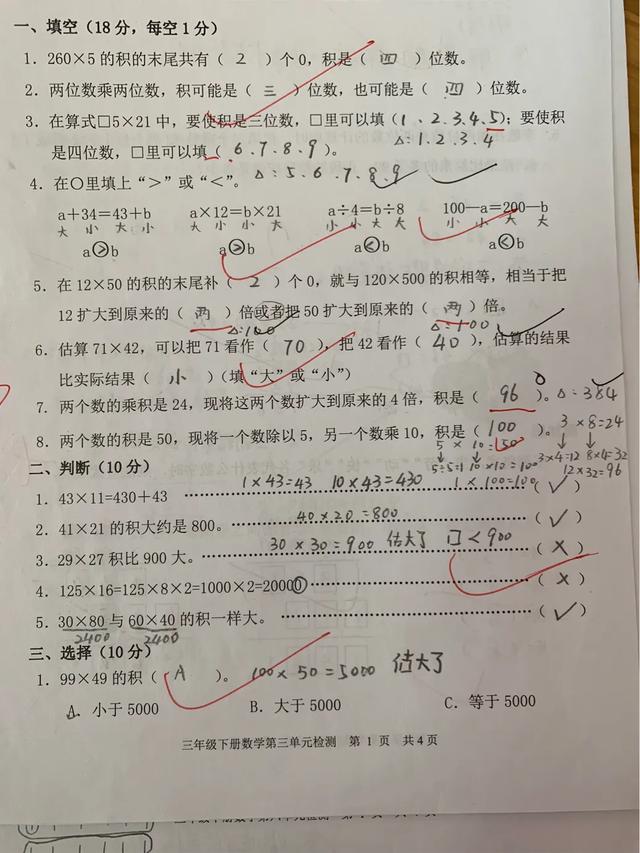 一、填空（18分，每空1分）
1．260×5的积的末尾共有（ 2 ）个0，积是（ 四 ）位数。
2．两位数乘两位数，积可能是（ 三 ）位数，也可能是（ 四 ）位数。
3．在算式□5×21中，要使积是三位数，□里可以填（1、2.3.4.5）；要使积
△:1.2.3.4
是四位数，□里可以填（ 6.7.8.9 ）。
△:5.6.7.8.9
4．在〇里填上“>”或“<”。
a＋34=43＋b a×12=b×21 a÷4=b÷8 100—a=200—b
大 小 大 小 大 小 小 大 小 小 大 大 小 小 大 大
a>b a>b a<b a<b
5．在12×50的积的末尾补（ 2 ）个0，就与120×500的积相等，相当于把
12扩大到原来的（ 两 ）倍或者把50扩大到原来的（ 两 ）倍。
△:100 △:100
6．估算71×42，可以把71看作（ 70 ），把42看作（ 40 ），估算的结果
比实际结果（ 小 ）（填“大”或“小”）
7．两个数的乘积是24，现将这两个数扩大到原来的4倍，积是（ 96 ）。△:384
8．两个数的积是50，现将一个数除以5，另一个数乘10，积是（ 100 ）。3×8=24
5×10=50
5÷5=1 10×10=100 3×4=12 8×4=32
12×32=96
二、判断（10分）
1×43=43 10×43=430 1×100=100
1．43×11=430＋43 （ ✓ ）
40×20=800
2．41×21的积大约是800。 （ ✓ ）
30×30=900 估大了 口<900
3．29×27积比900大。 （ × ）
4．125×16=125×8×2=1000×2=20000 （ × ）
5．30×80与60×40的积一样大。 （ ✓ ）
2400 2400
三、选择（10分）
1．99×49的积（ A ）。 100×50=5000 估大了
A．小于5000 B．大于5000 C．等于5000
三年级下册数学第三单元检测 第 1 页 共4页